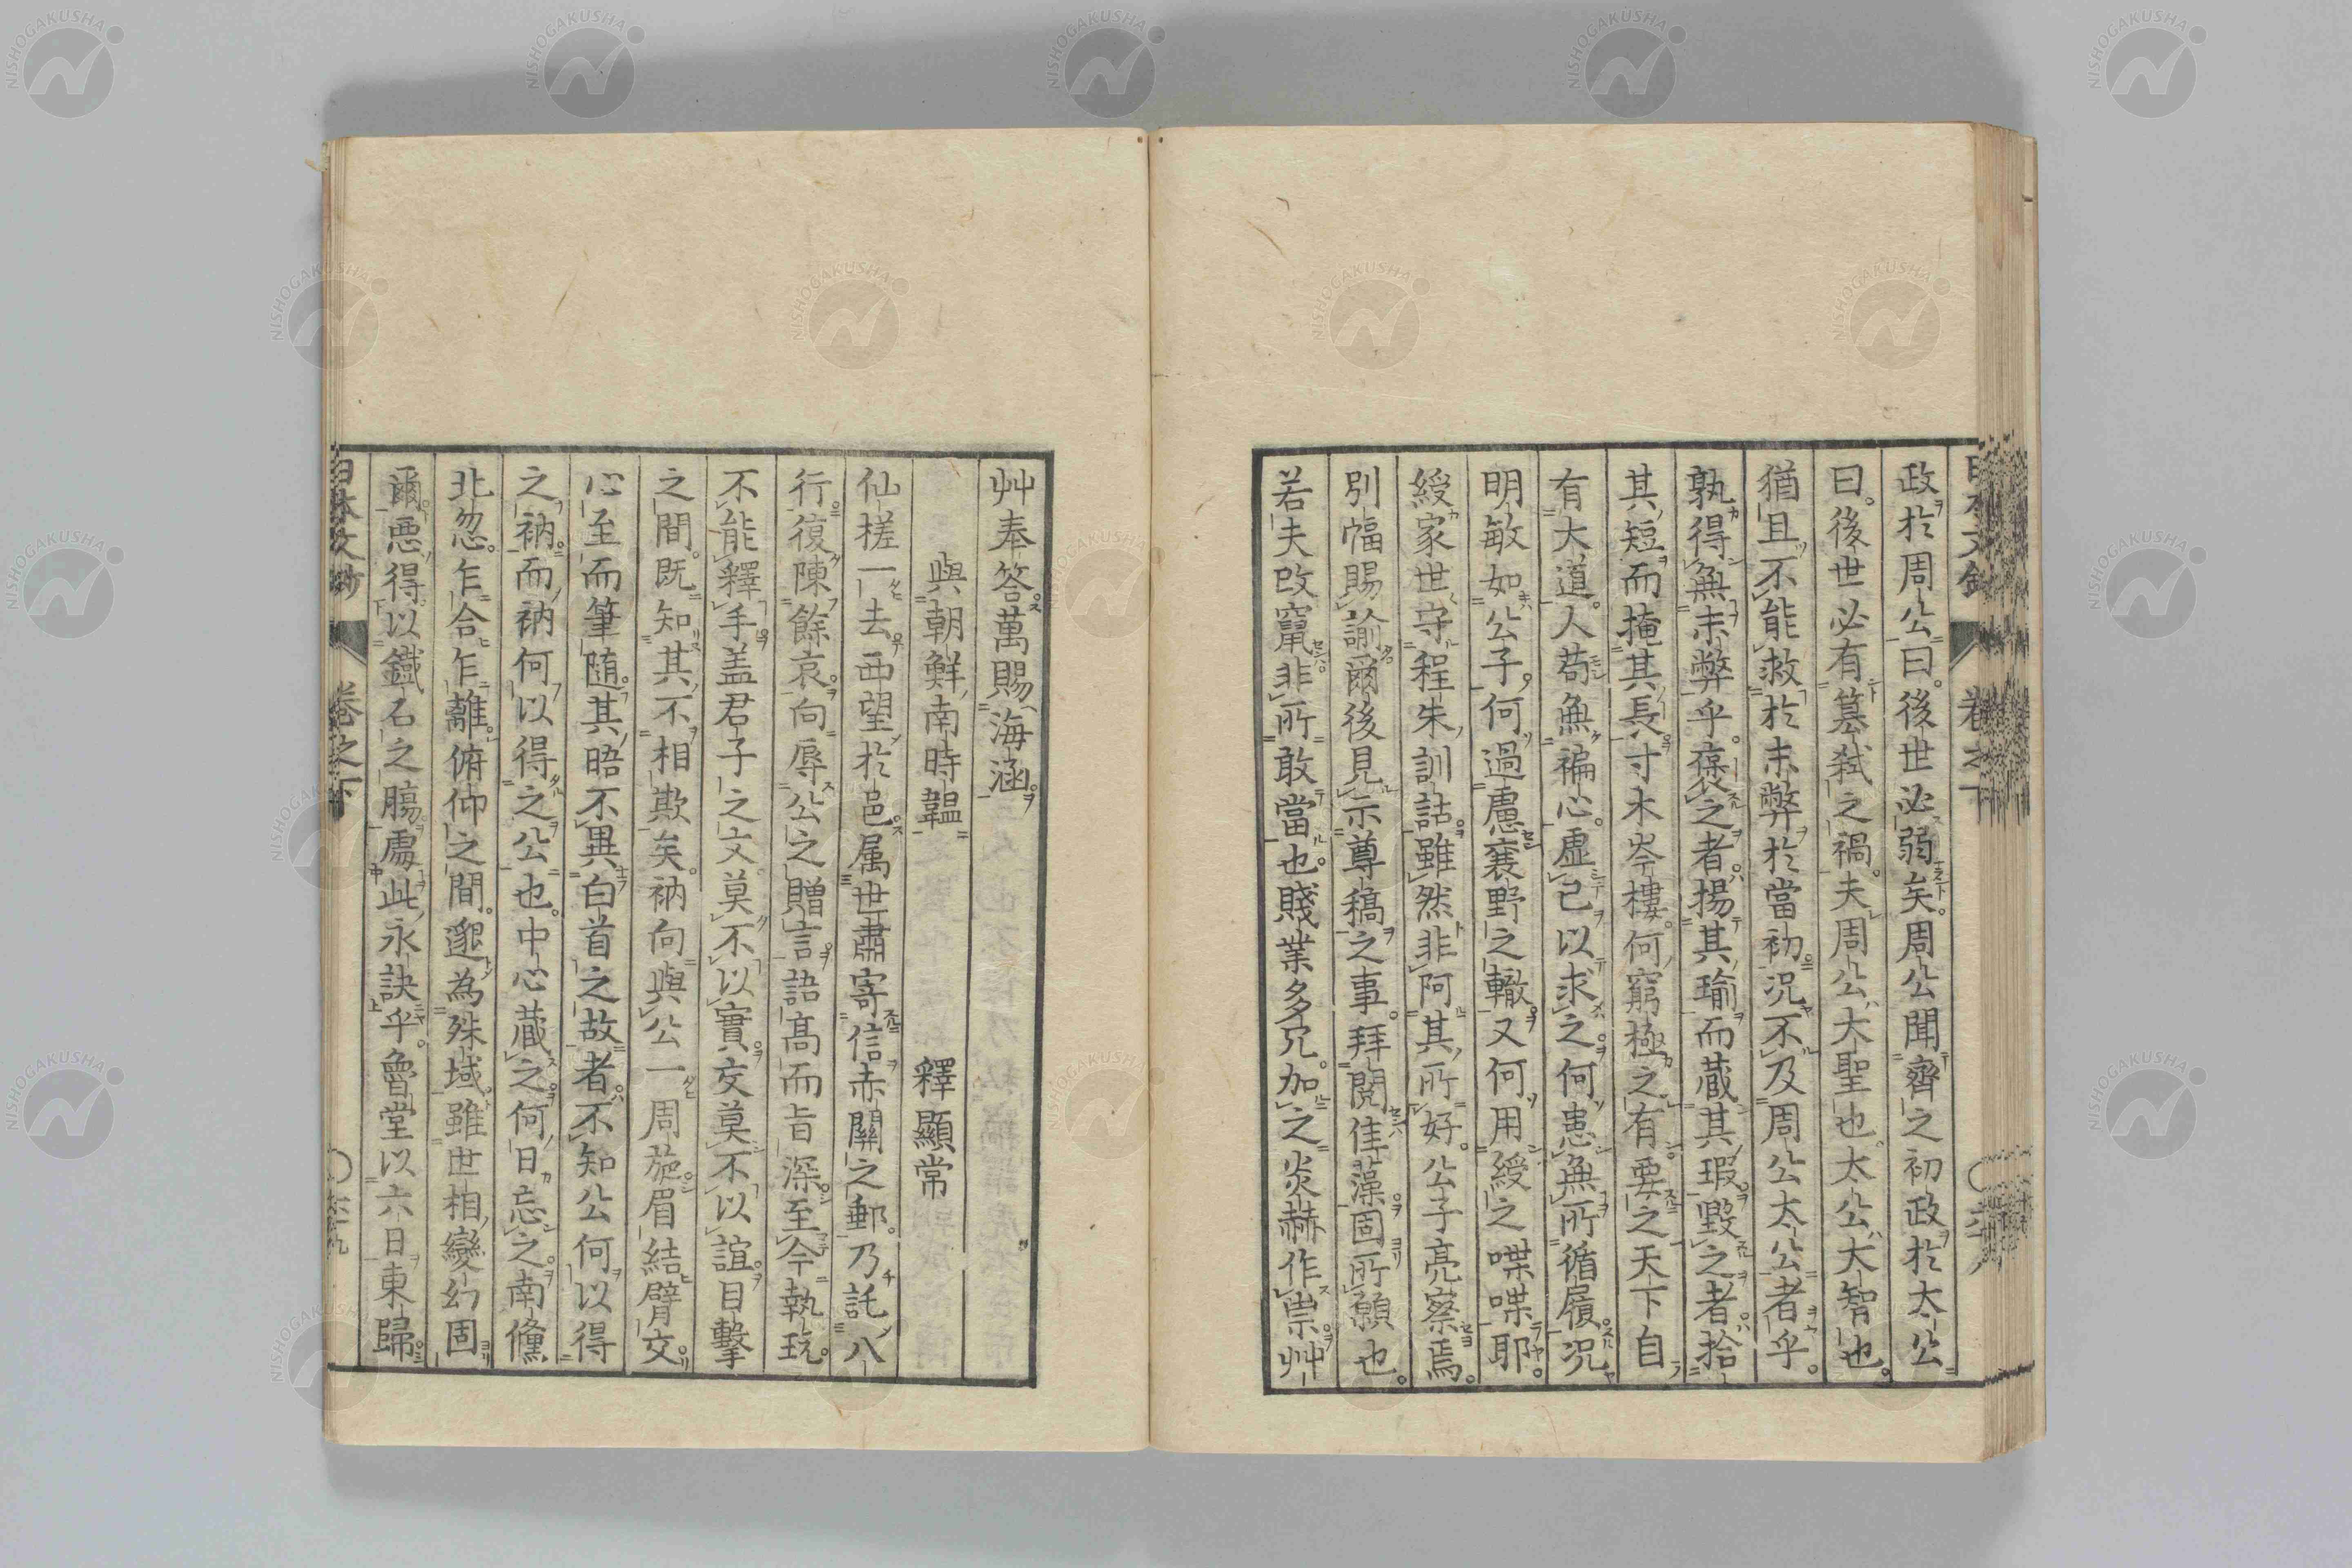 政於周公曰。後世必弱矣。周公聞齊之初政於太公
曰。後世必有簒弑之禍。夫周公大聖也。太公大智也。
猶且不能救於末弊於當初。況不及周公太公者乎。
孰得無末弊乎。褒之者。揚其瑜而藏其瑕。毀之者。拾
其短而掩其長。寸木岑樓。何窮極之有。要之天下自
有大道。人苟無褊心。虚己以求之。何患無所循履。況
明敏如公子。何過慮襄野之轍。又何用綬之喋喋耶。
綬家世守程朱訓詁。雖然非阿其所好。公子亮察焉。
別幅賜諭爾後見示尊稿之事。拜閱佳藻。固所願也。
若夫改竄。非所敢當也。賤業多冗。加之炎赫作祟。艸
艸奉答。萬賜海涵。
與朝鮮南時韞
釋顯常
仙槎一去。西望於邑。属世肅寄信赤關之郵。乃託八
行。復陳餘哀。向辱公之贈言。語高而旨深。至今執玩。
不能釋手。盖君子之文。莫不以實。交莫不以誼。目擊
之間。既知其不相欺矣。衲向與公一周旋。眉結臂交。
心至而筆随。其晤不異白首之故者。不知公何以得
之衲。而衲何以得之公也。中心藏之。何日忘之。南儵
北忽。乍合乍離。俯仰之間。邈為殊域。雖世相變幻固
爾。悪得以鐵石之腸處此永訣乎。魯堂以六日東歸。
日本文鈔
卷之下